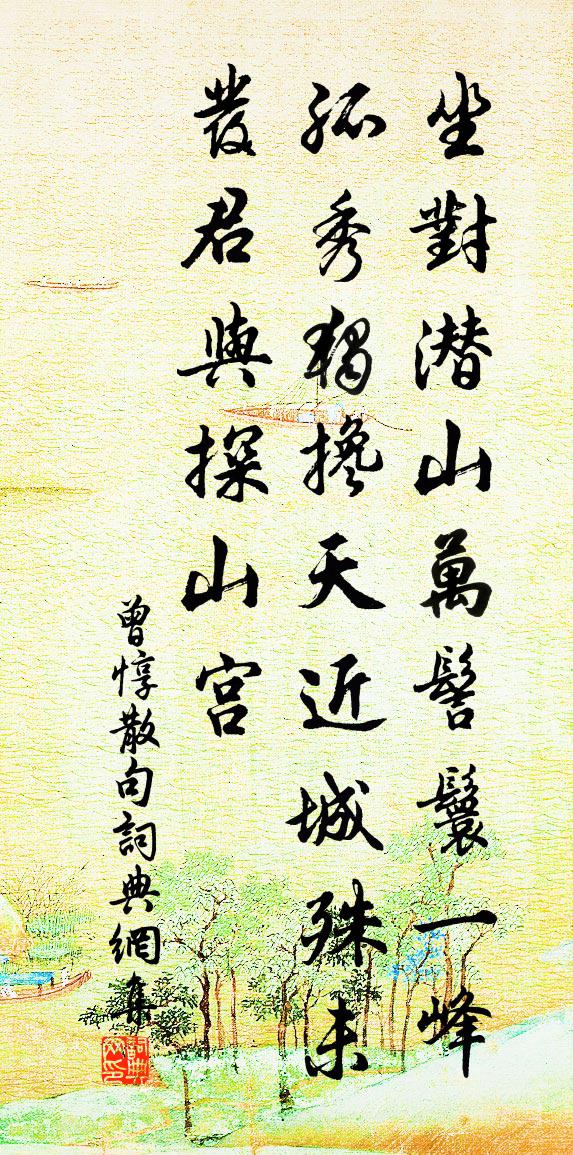 坐對潜山萬髻鬟一峰
孤秀獨攙天近城殊未
發君與探山宮
曾惇散句詞典網集